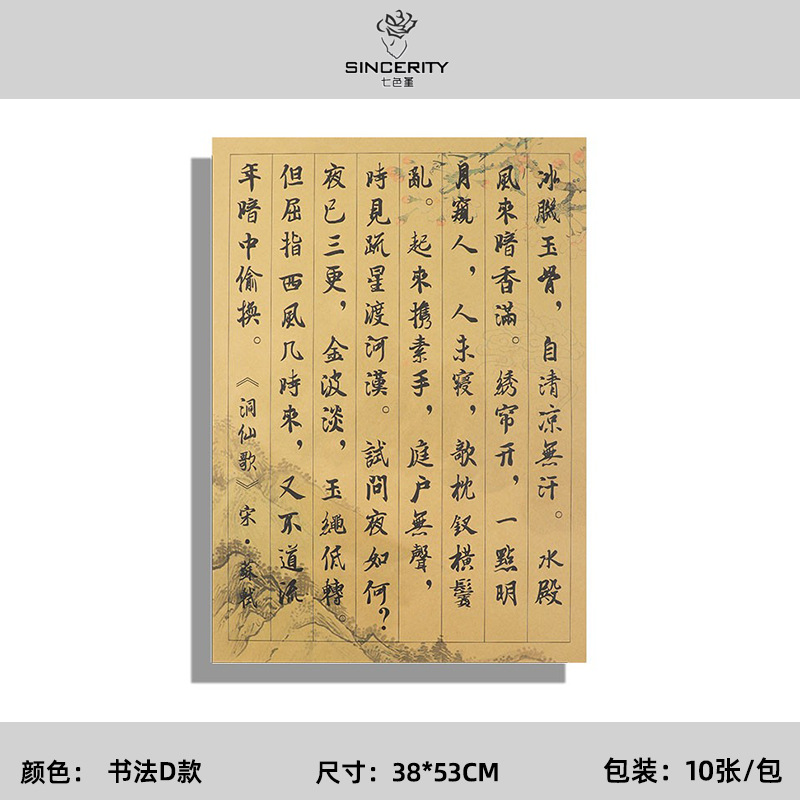 SINCERITY
七色堇
冰肌玉骨，自清凉無汗。水殿
風來暗香滿。綉帘开，一點明
月窺人，人未寝，歌枕釵横鬢
亂。起來携素手，庭户無聲，
時見疏星渡河漢。試問夜如何？
夜已三更，金波淡，玉繩低轉。
但屈指西風几時來，又不道流
年暗中偷換。《洞仙歌》宋·蘇軾
颜色： 书法D款
尺寸：38*53CM
包装：10张/包